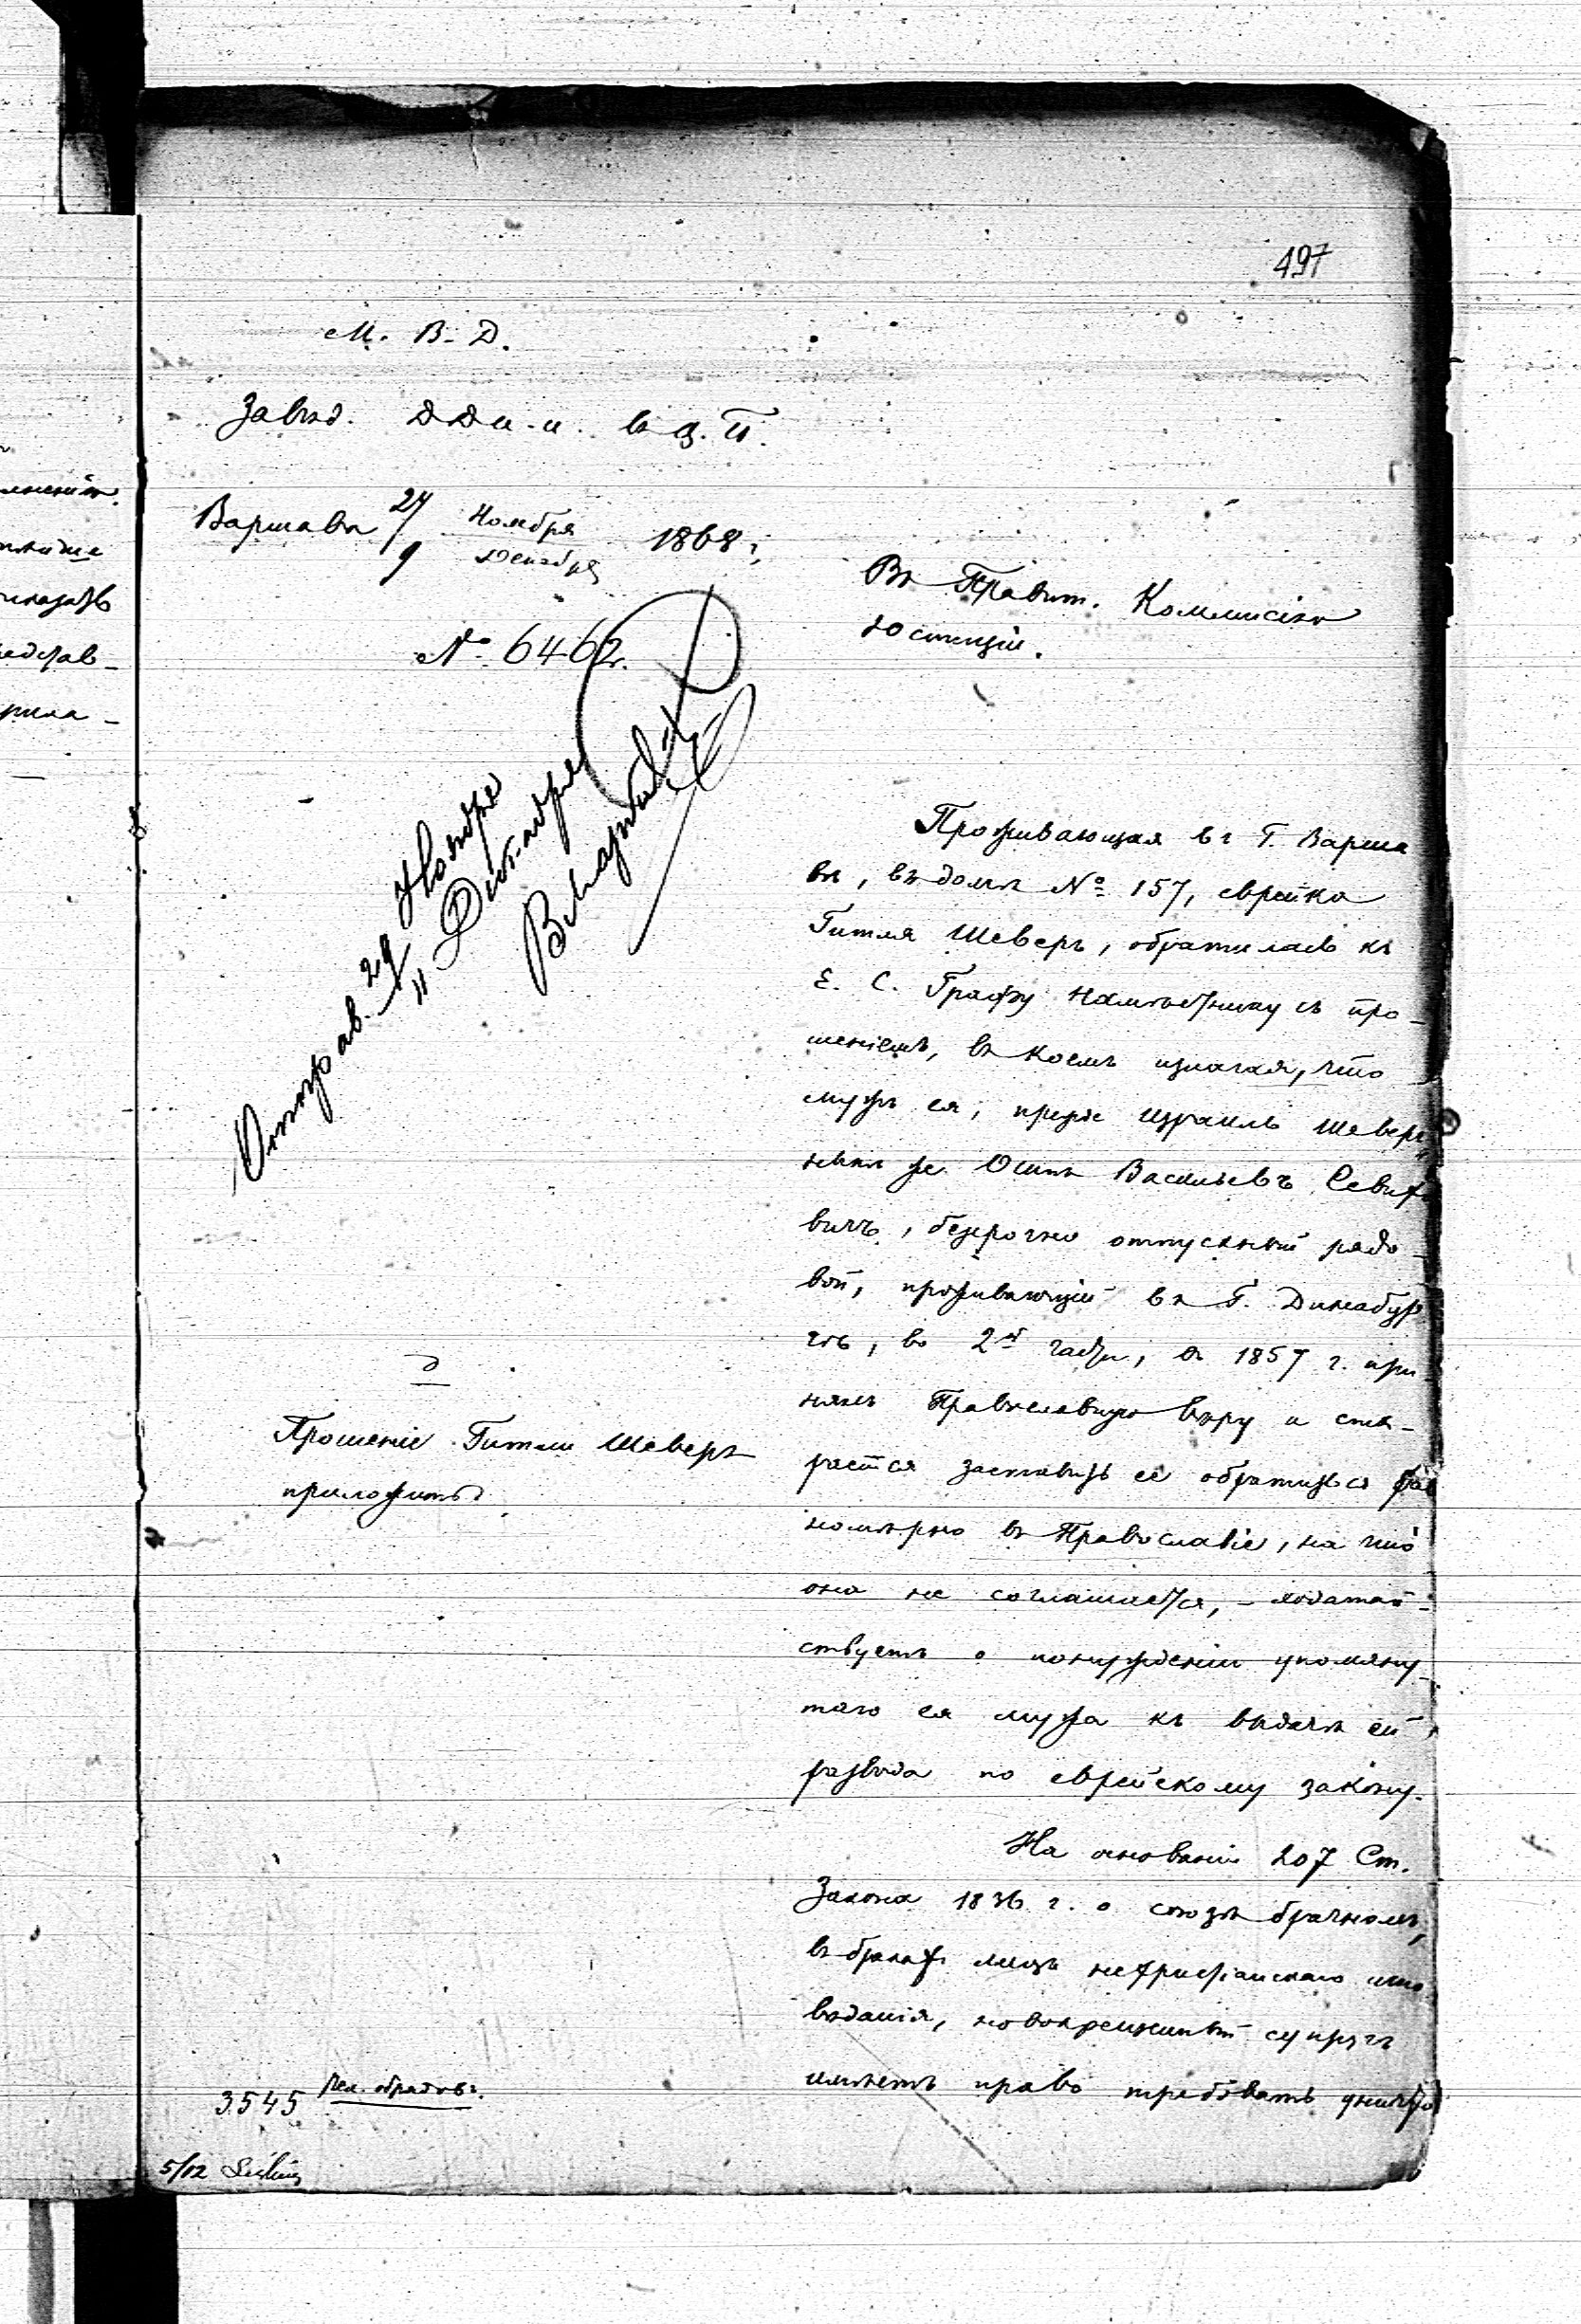 497
М. В. Д.
Завѣд. ДДи.и. въ Ц. П.
Варшава 27/9 Ноября/Декабря 1868 г.
№ 6462.
Въ Правит. Коммисію
Юстиціи.
Отправ. 29 Ноября
11 Декабря
Проживающая въ Г. Варша
вѣ, въ домѣ № 157, еврейка
Гитля Шеверъ, обратилась къ
Е. С. Графу Намѣстнику съ про-
шеніемъ, въ коемъ излагая, что
мужъ ея, прежде Израиль Шеверъ,
нынѣ же Осипъ Васильевъ
вичъ, безсрочно отпускный рядо-
вой, проживающій въ Г. Динабур
гѣ, во 2й части, въ 1857 г. при-
нялъ Православную вѣру и ста-
рается заставить ее обратиться
номѣрно въ Православіе, на что
она не соглашается, - ходатай-
ствуетъ о понужденіи упомяну-
таго ея мужа къ выдачѣ ей,
развода по еврейскому закону.
На основаніи 207 Ст.
Закона 1836 г. о союзѣ брачномъ,
въ бракахъ лицъ нехристіанскаго испо
вѣданія, новокрещенный супругъ
имѣетъ право требовать уничто
Прошеніе Гитли Шеверъ
приложить
3545
5/12